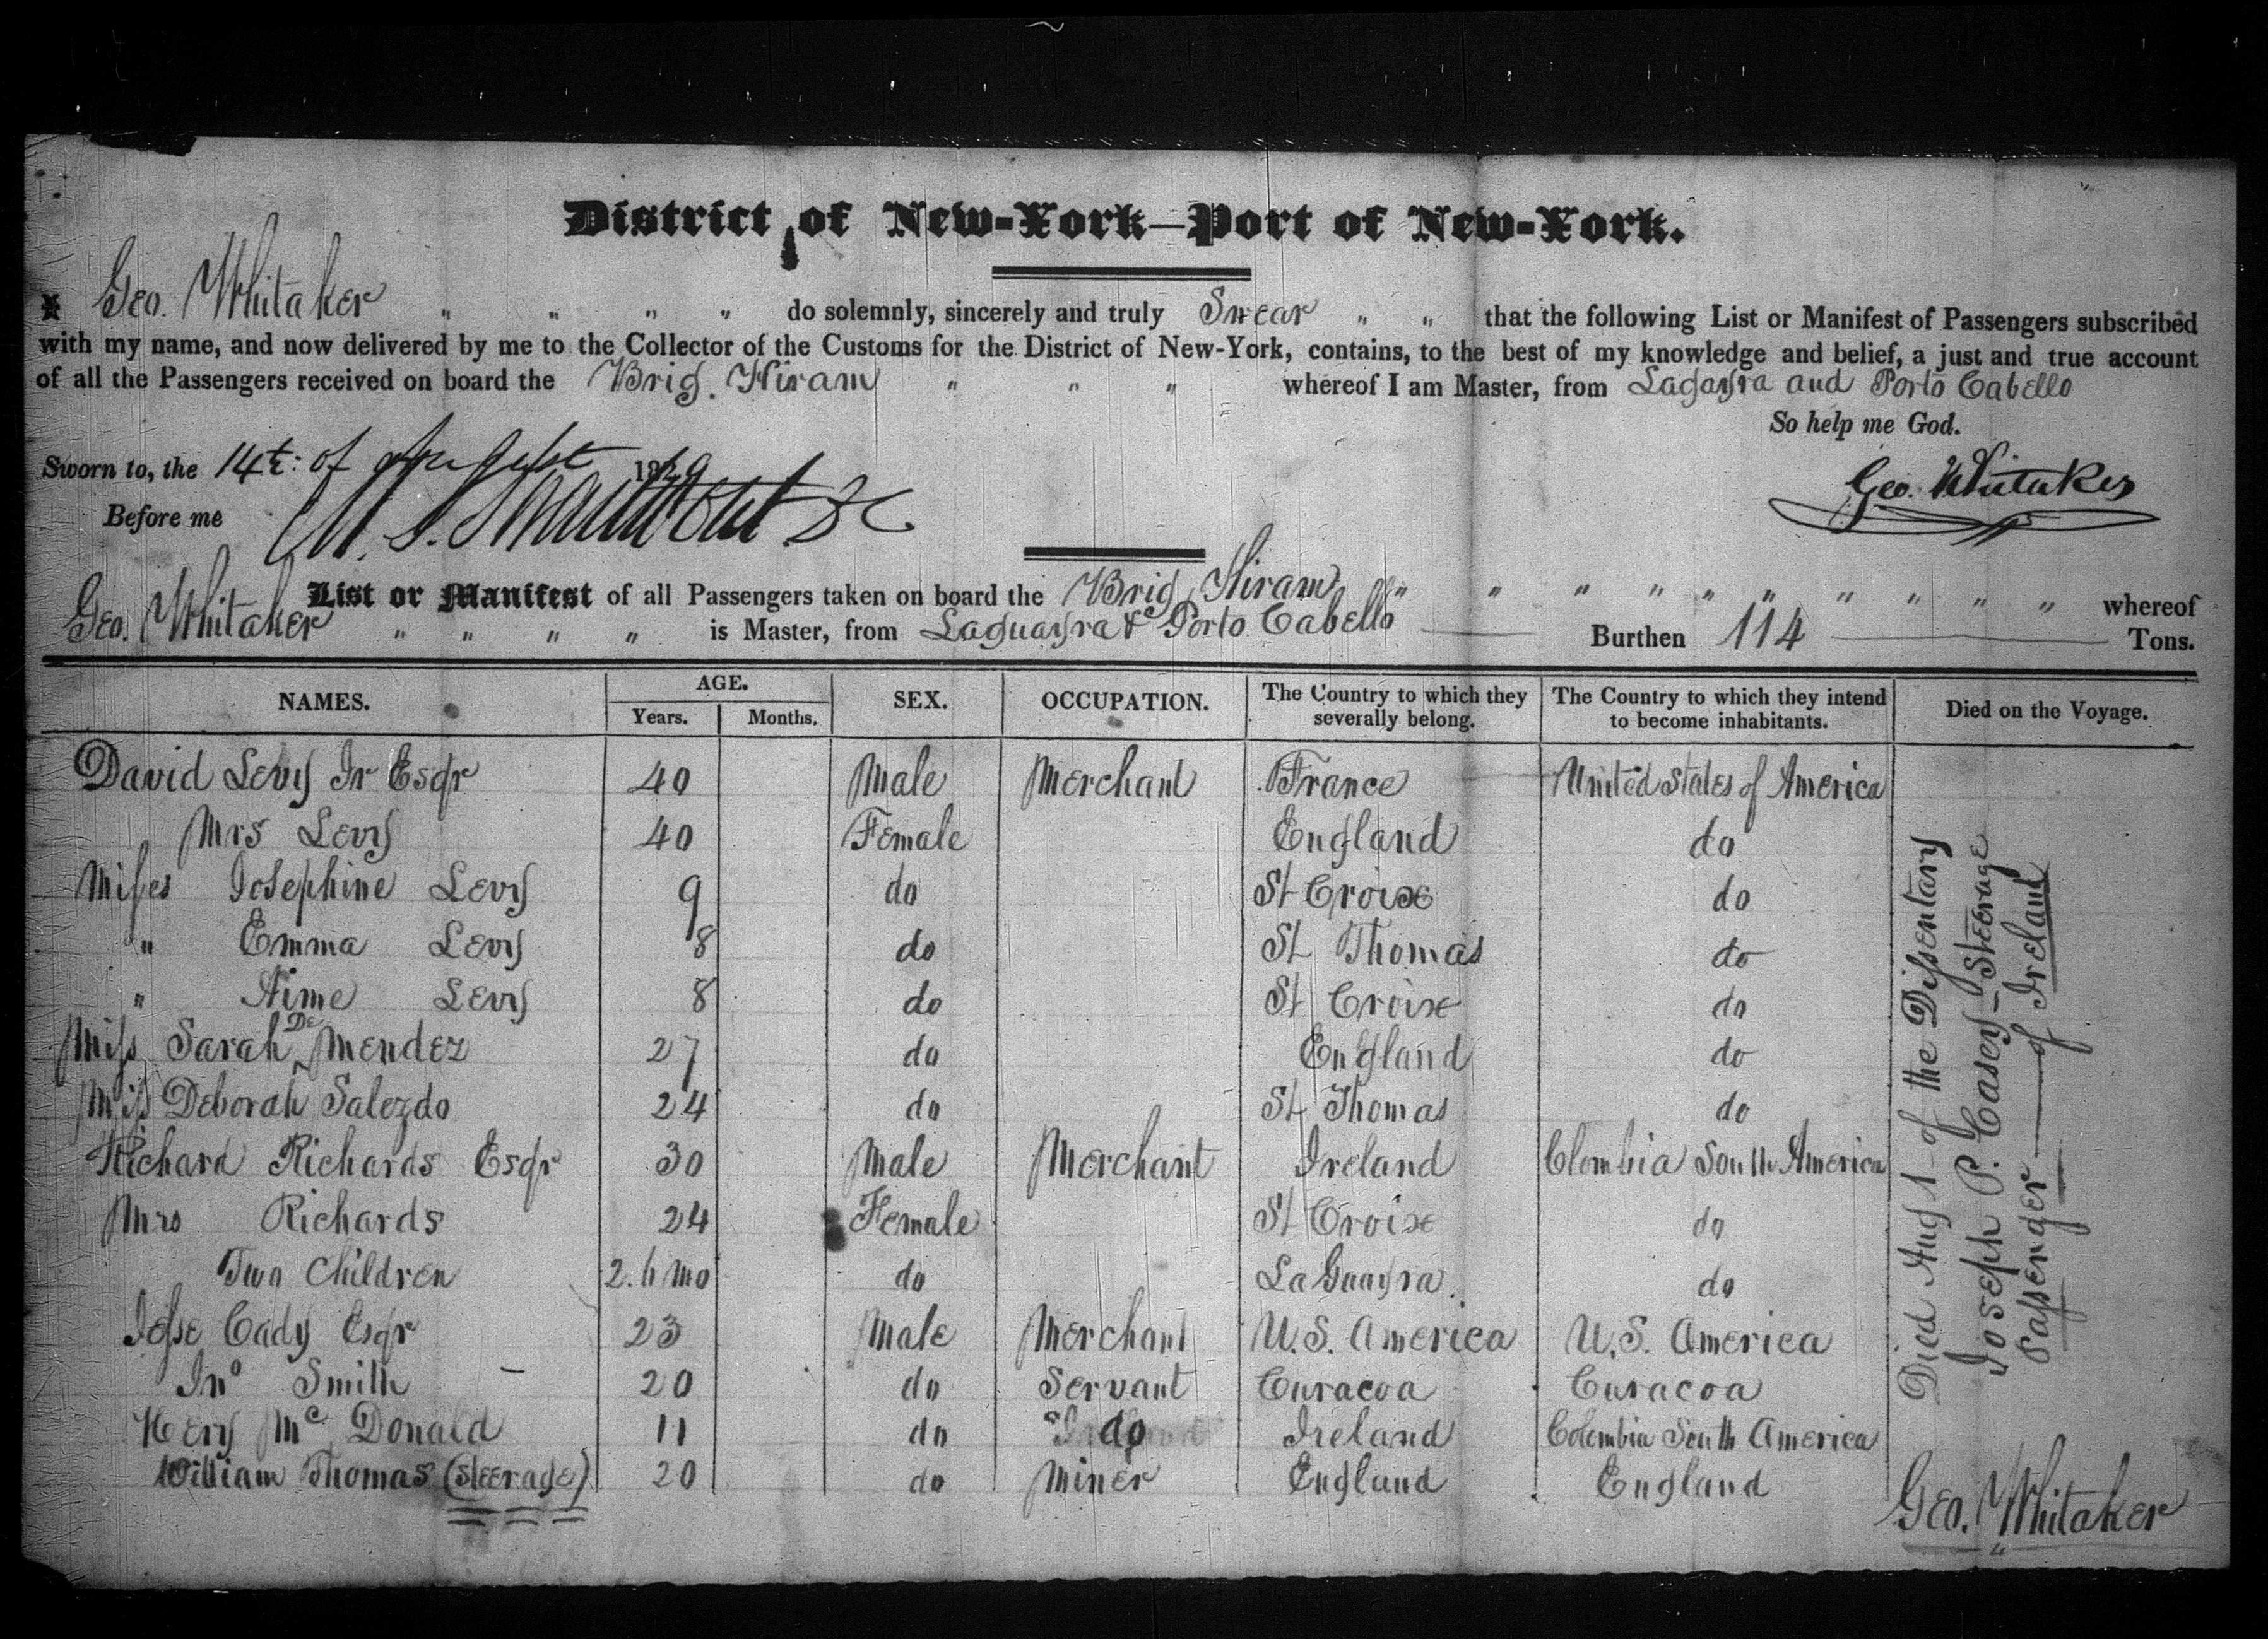 District of New-York—Port of New-York.
Geo. Whitaker " " " " do solemnly, sincerely and truly Swear " " that the following List or Manifest of Passengers subscribed
with my name, and now delivered by me to the Collector of the Customs for the District of New-York, contains, to the best of my knowledge and belief, a just and true account
of all the Passengers received on board the Brig. Hiram " " " whereof I am Master, from Laguayra and Porto Cabello
So help me God.
Sworn to, the 14t: of August 1829
Geo. Whitaker
Before me
List or Manifest of all Passengers taken on board the Brig Hiram " " " " " " " " " " whereof
Geo. Whitaker " " " " is Master, from Laguayra & Porto Cabello Burthen 114 Tons.
NAMES. AGE. SEX. OCCUPATION. The Country to which they severally belong. The Country to which they intend to become inhabitants. Died on the Voyage.
Years. Months.
David Levy Jr Esqr 40 Male Merchant France United States of America
Mrs Levy 40 Female England do
Misses Josephine Levy 9 do St Croix do
" Emma Levy 8 do St Thomas do
" Aime Levy 8 do St Croix do
Miss Sarah De Mendez 27 do England do
Miss Deborah Salezdo 24 do St Thomas do
Richard Richards Esqr 30 Male Merchant Ireland Clombia South America
Mrs Richards 24 Female St Croix do
Two Children 2. 6 mo do La Guayra. do
Jesse Cady Esqr 23 Male Merchant U.S. America U.S. America
Jno Smith – 20 do Servant Curacoa Curacoa
Hery Mc Donald 11 do do Ireland Colombia South America
William Thomas (Steerage) 20 do Miner England England
Died Aug 1 - of the Dissentary
Joseph P. Casey - Steerage
Passenger — of Ireland
Geo. Whitaker